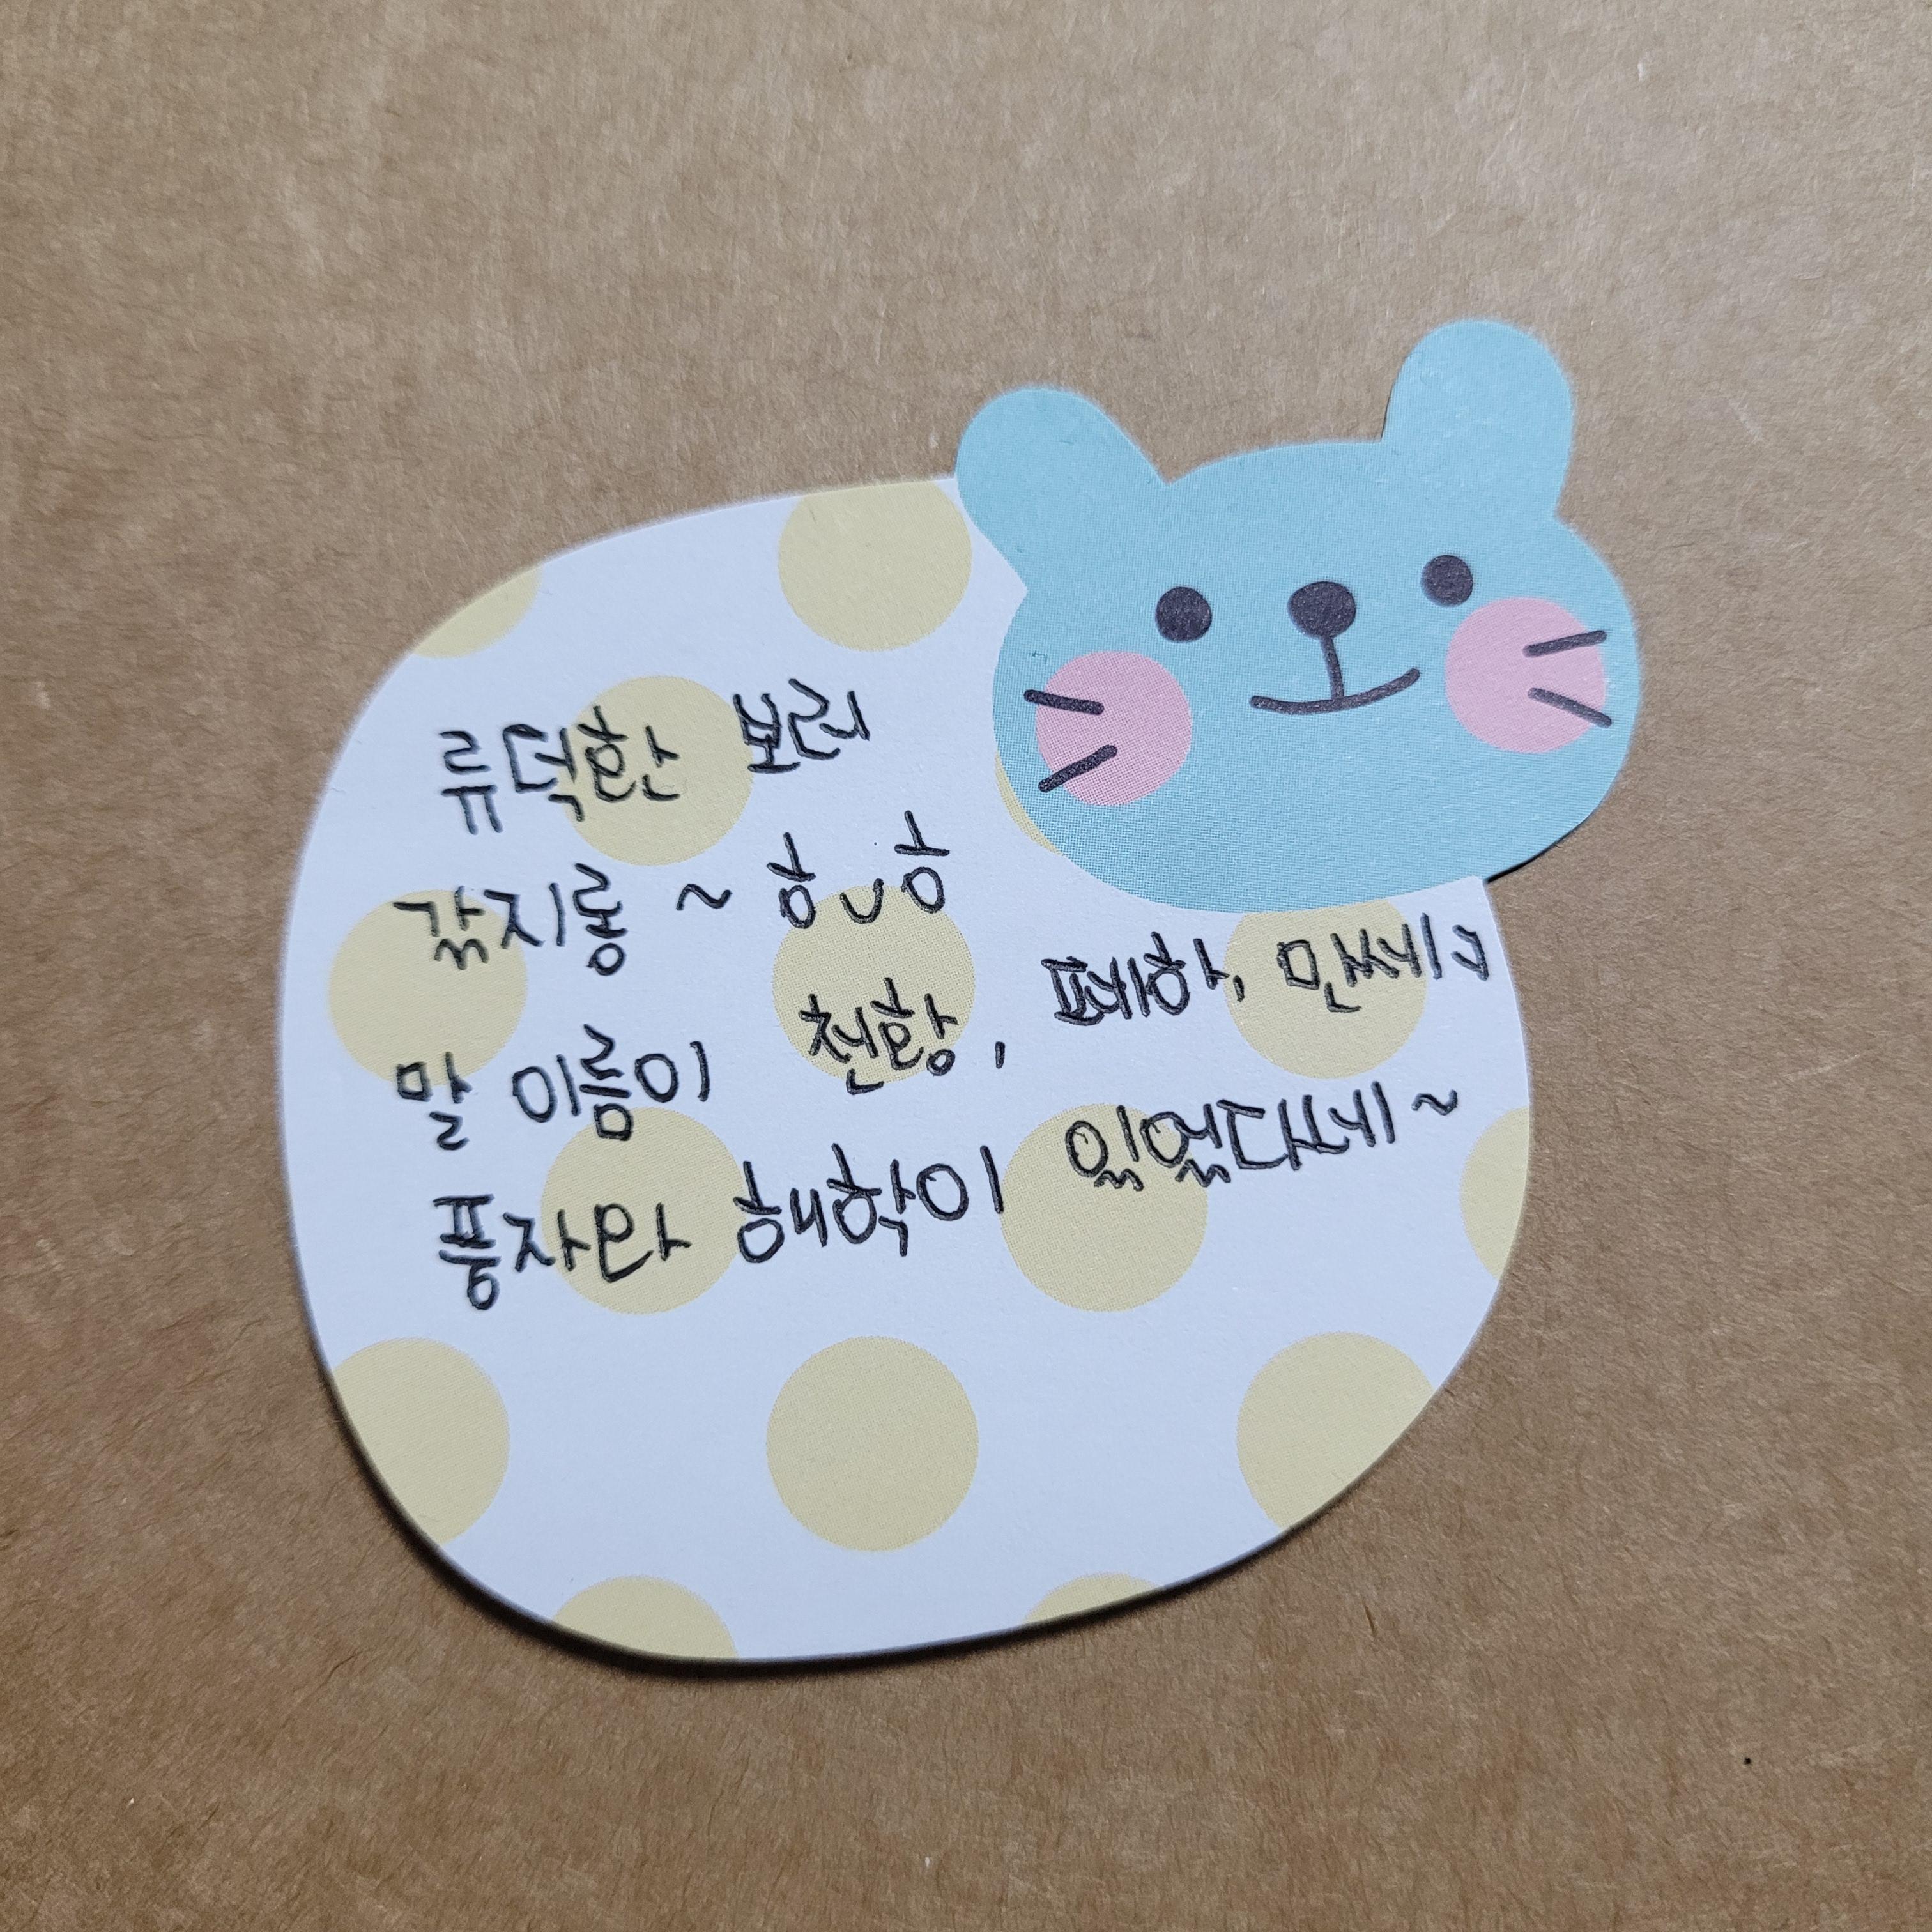 류덕환 보러
갔지롱 ~ ㅎᴗㅎ
말 이름이 천황, 폐하, 만세고
풍자와 해학이 있었다네~